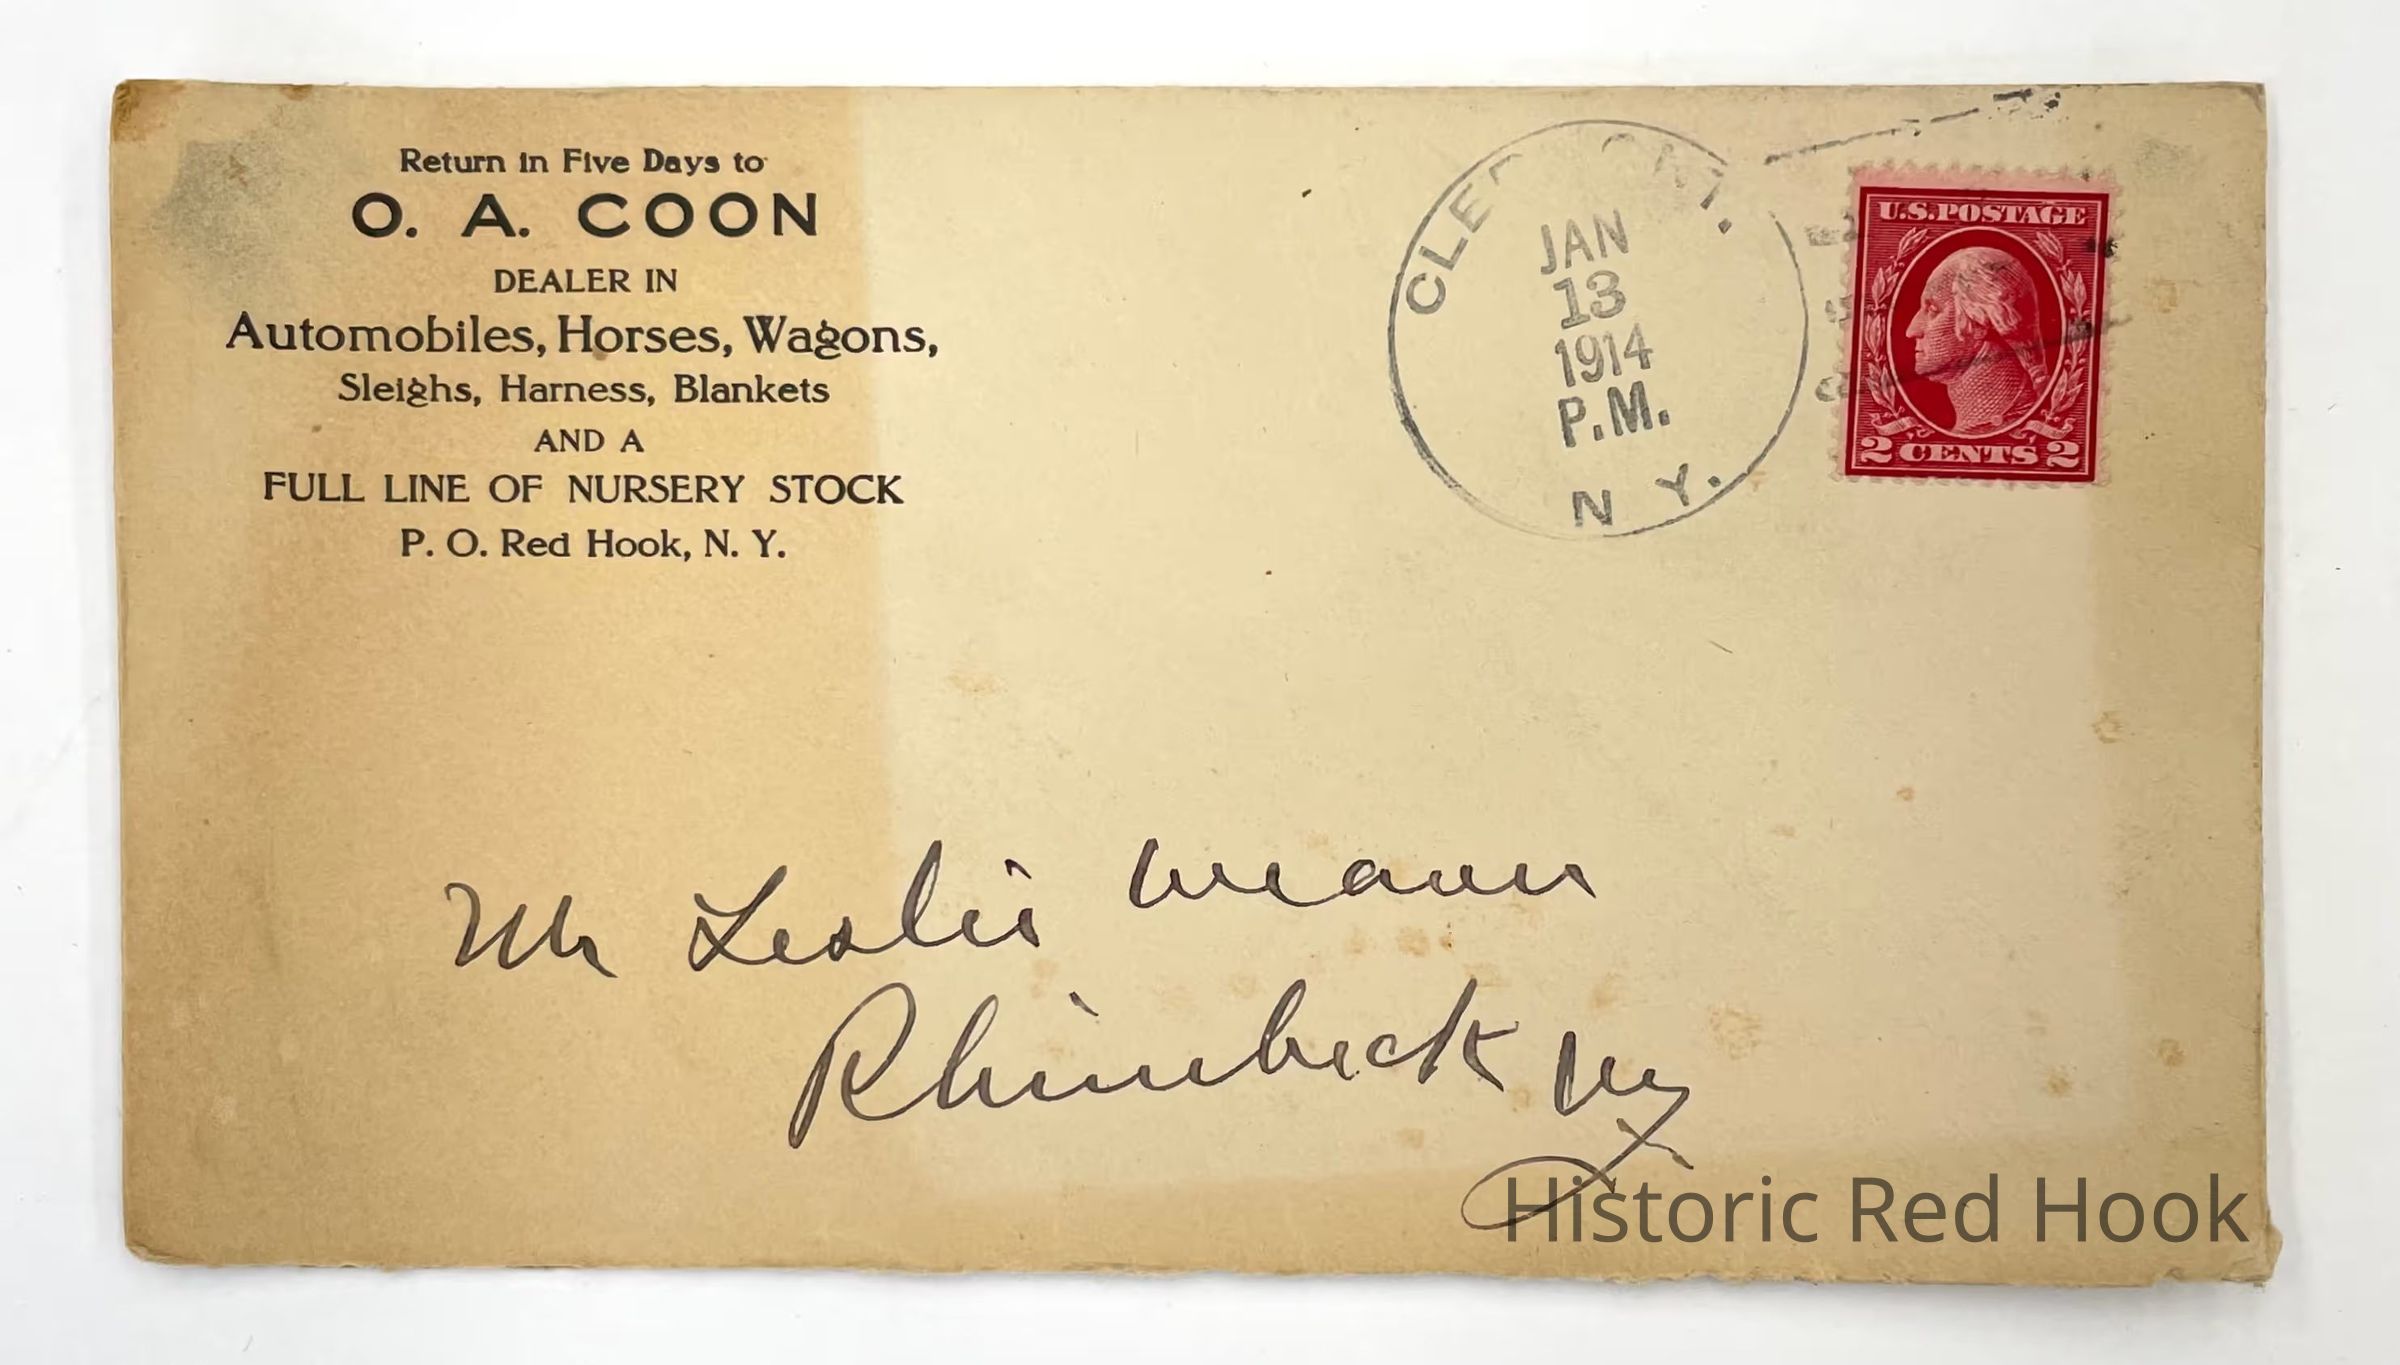 Return in Five Days to
O. A. COON
DEALER IN
Automobiles, Horses, Wagons,
Sleighs, Harness, Blankets
AND A
FULL LINE OF NURSERY STOCK
P. O. Red Hook, N. Y.
JAN
13
1914
P.M.
N Y.
U.S. POSTAGE
2 CENTS 2
Mr Leslie Weaver
Rhinebeck Ny
Historic Red Hook